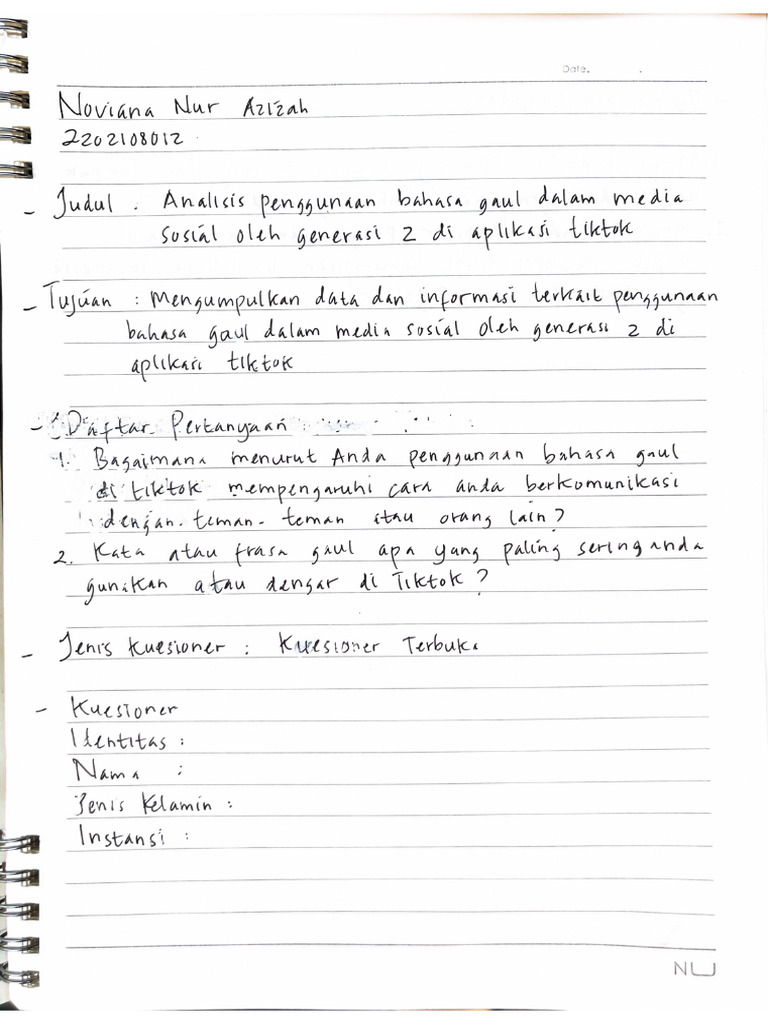 Date.
Noviana Nur Azizah
2202108012
- Judul : Analisis penggunaan bahasa gaul dalam media
sosial oleh generasi Z di aplikasi tiktok
- Tujuan : Mengumpulkan data dan informasi terkait penggunaan
bahasa gaul dalam media sosial oleh generasi Z di
aplikasi tiktok
- Daftar Pertanyaan
1. Bagaimana menurut Anda penggunaan bahasa gaul
di tiktok mempengaruhi cara anda berkomunikasi
dengan teman-teman atau orang lain?
2. Kata atau frasa gaul apa yang paling sering anda
gunakan atau dengar di Tiktok?
- Jenis Kuesioner : Kuesioner Terbuka
- Kuesioner
Identitas :
Nama :
Jenis Kelamin :
Instansi :
NU